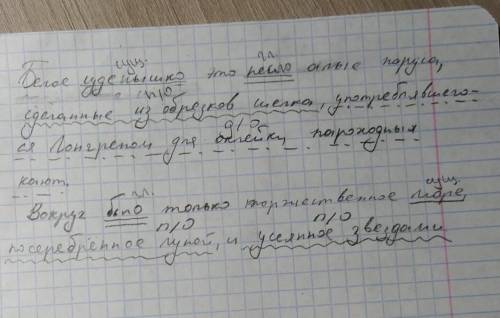 сущ. гл.
Белое суденышко это несло алые паруса,
п/о
сделанные из обрезков шелка, употреблявшего-
д/о
ся Лонгреном для оклейки пароходных
кают.
гл. сущ.
Вокруг было только торжественное море,
п/о п/о
посеребренное луной, и усеянное звездами